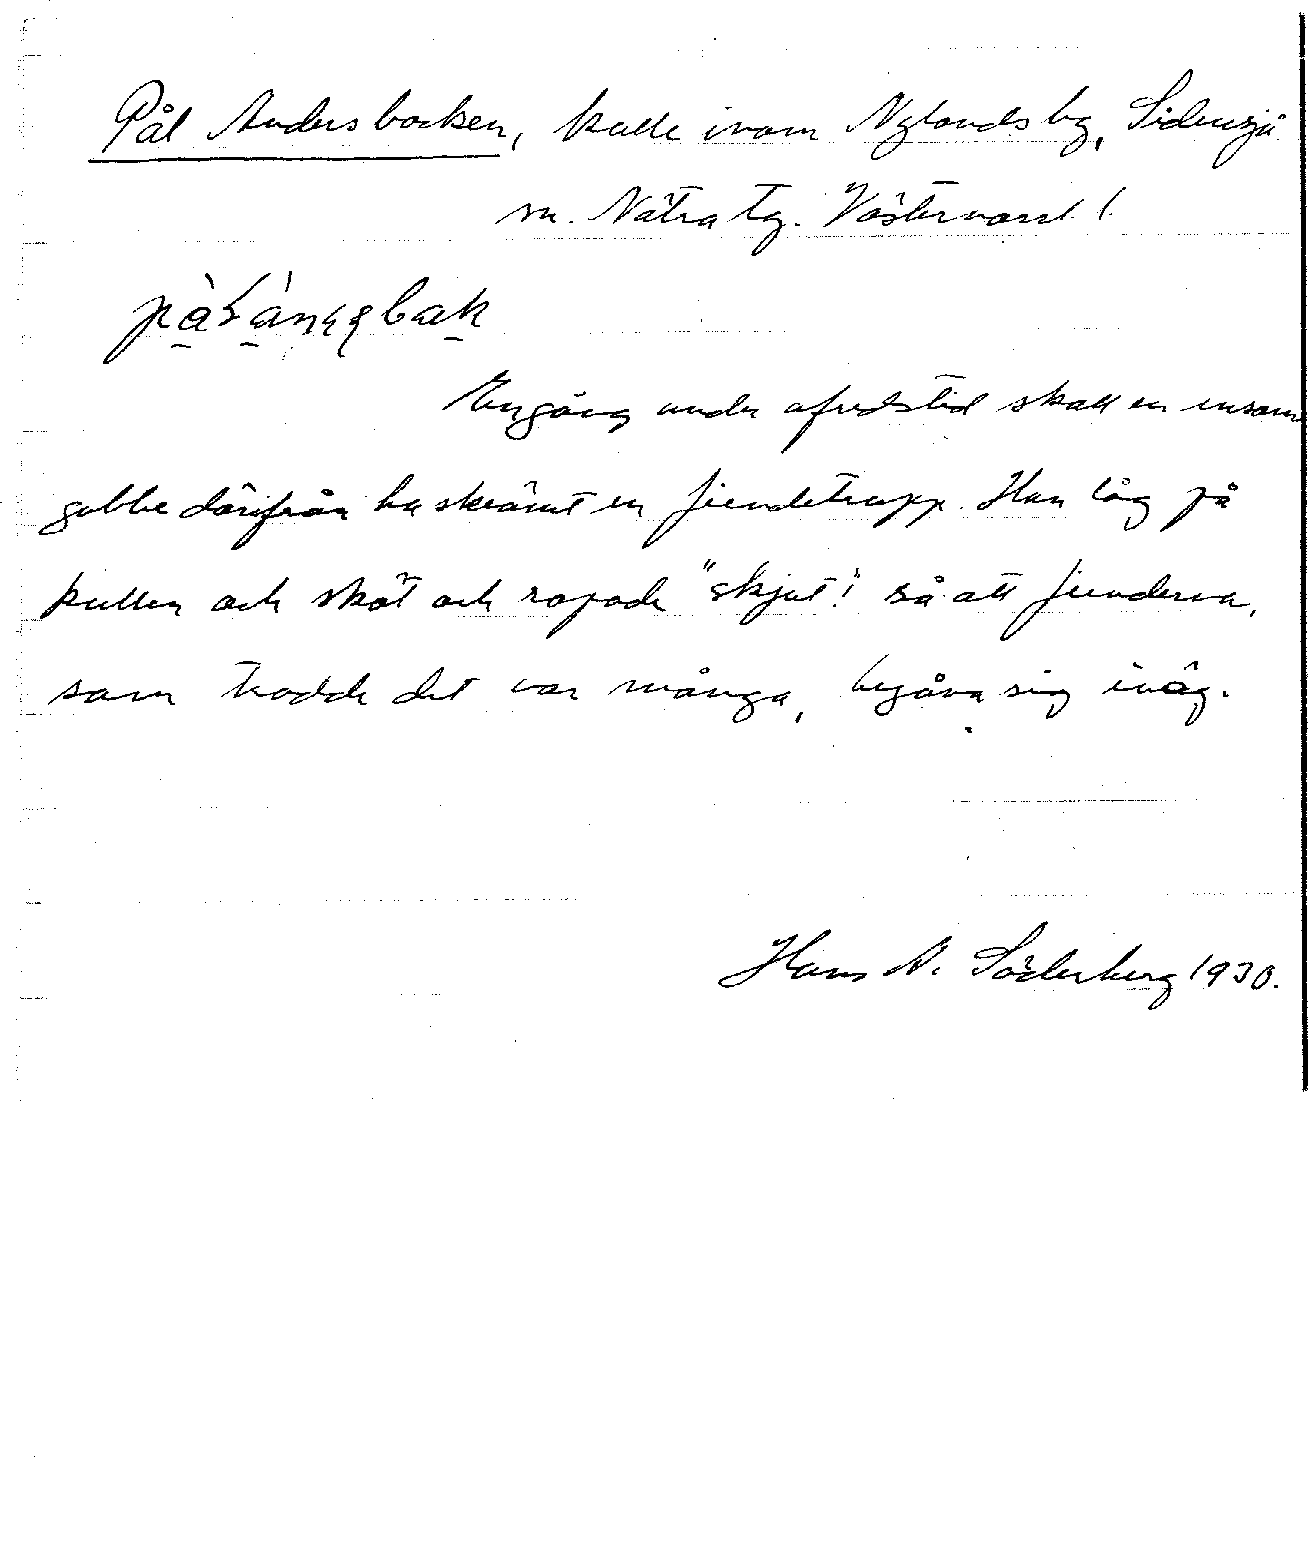 Pål Andersbacken, kulle inom Nylands by, Sidensjö
sn. Nätra tg. Västernorrl. l.
Engång under ofredstid skall en ensam
gubbe därifrån ha skrämt en fiendetrupp. Han låg på
kullen och sköt och ropade "skjut!" så att fienderna,
som trodde det var många, begåvo sig iväg.
Hans N. Söderberg 1930.